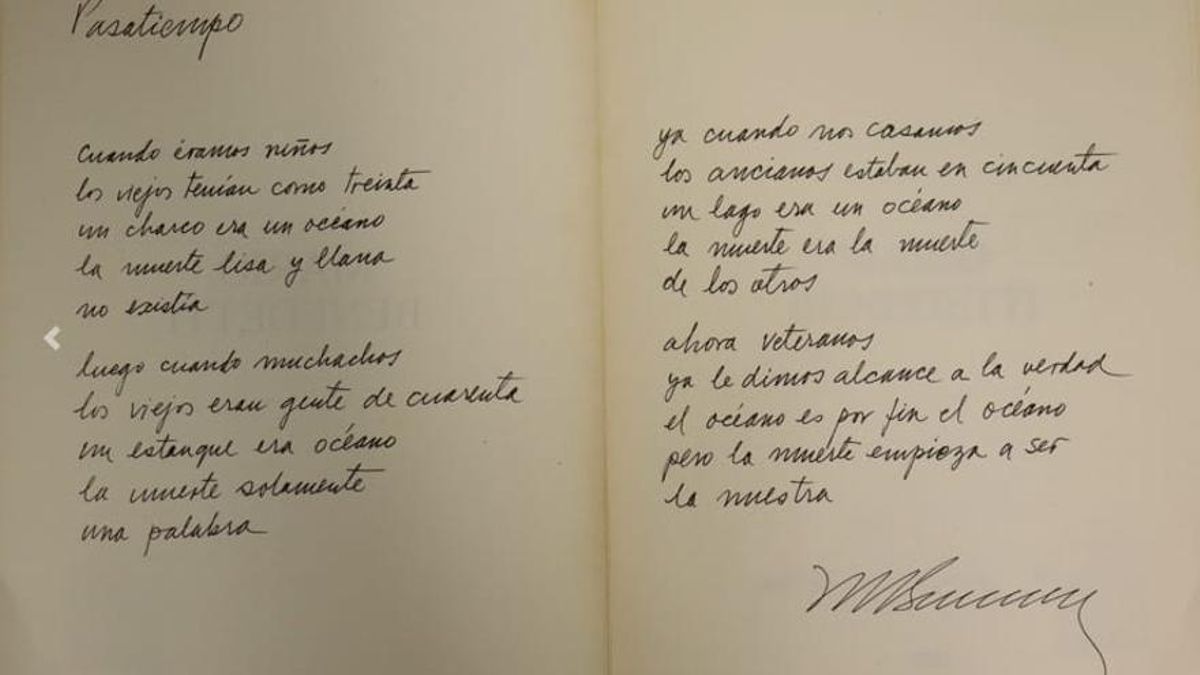 Pasatiempo
cuando éramos niños
los viejos tenían como treinta
un charco era un océano
la muerte lisa y llana
no existía
luego cuando muchachos
los viejos eran gente de cuarenta
un estanque era océano
la muerte solamente
una palabra
ya cuando nos casamos
los ancianos estaban en cincuenta
un lago era un océano
la muerte era la muerte
de los otros
ahora veteranos
ya le dimos alcance a la verdad
el océano es por fin el océano
pero la muerte empieza a ser
la nuestra